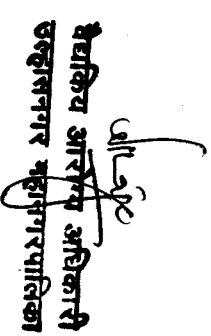 वैद्यकिय आरोग्य अधिकारी
उल्हासनगर महानगरपालिका